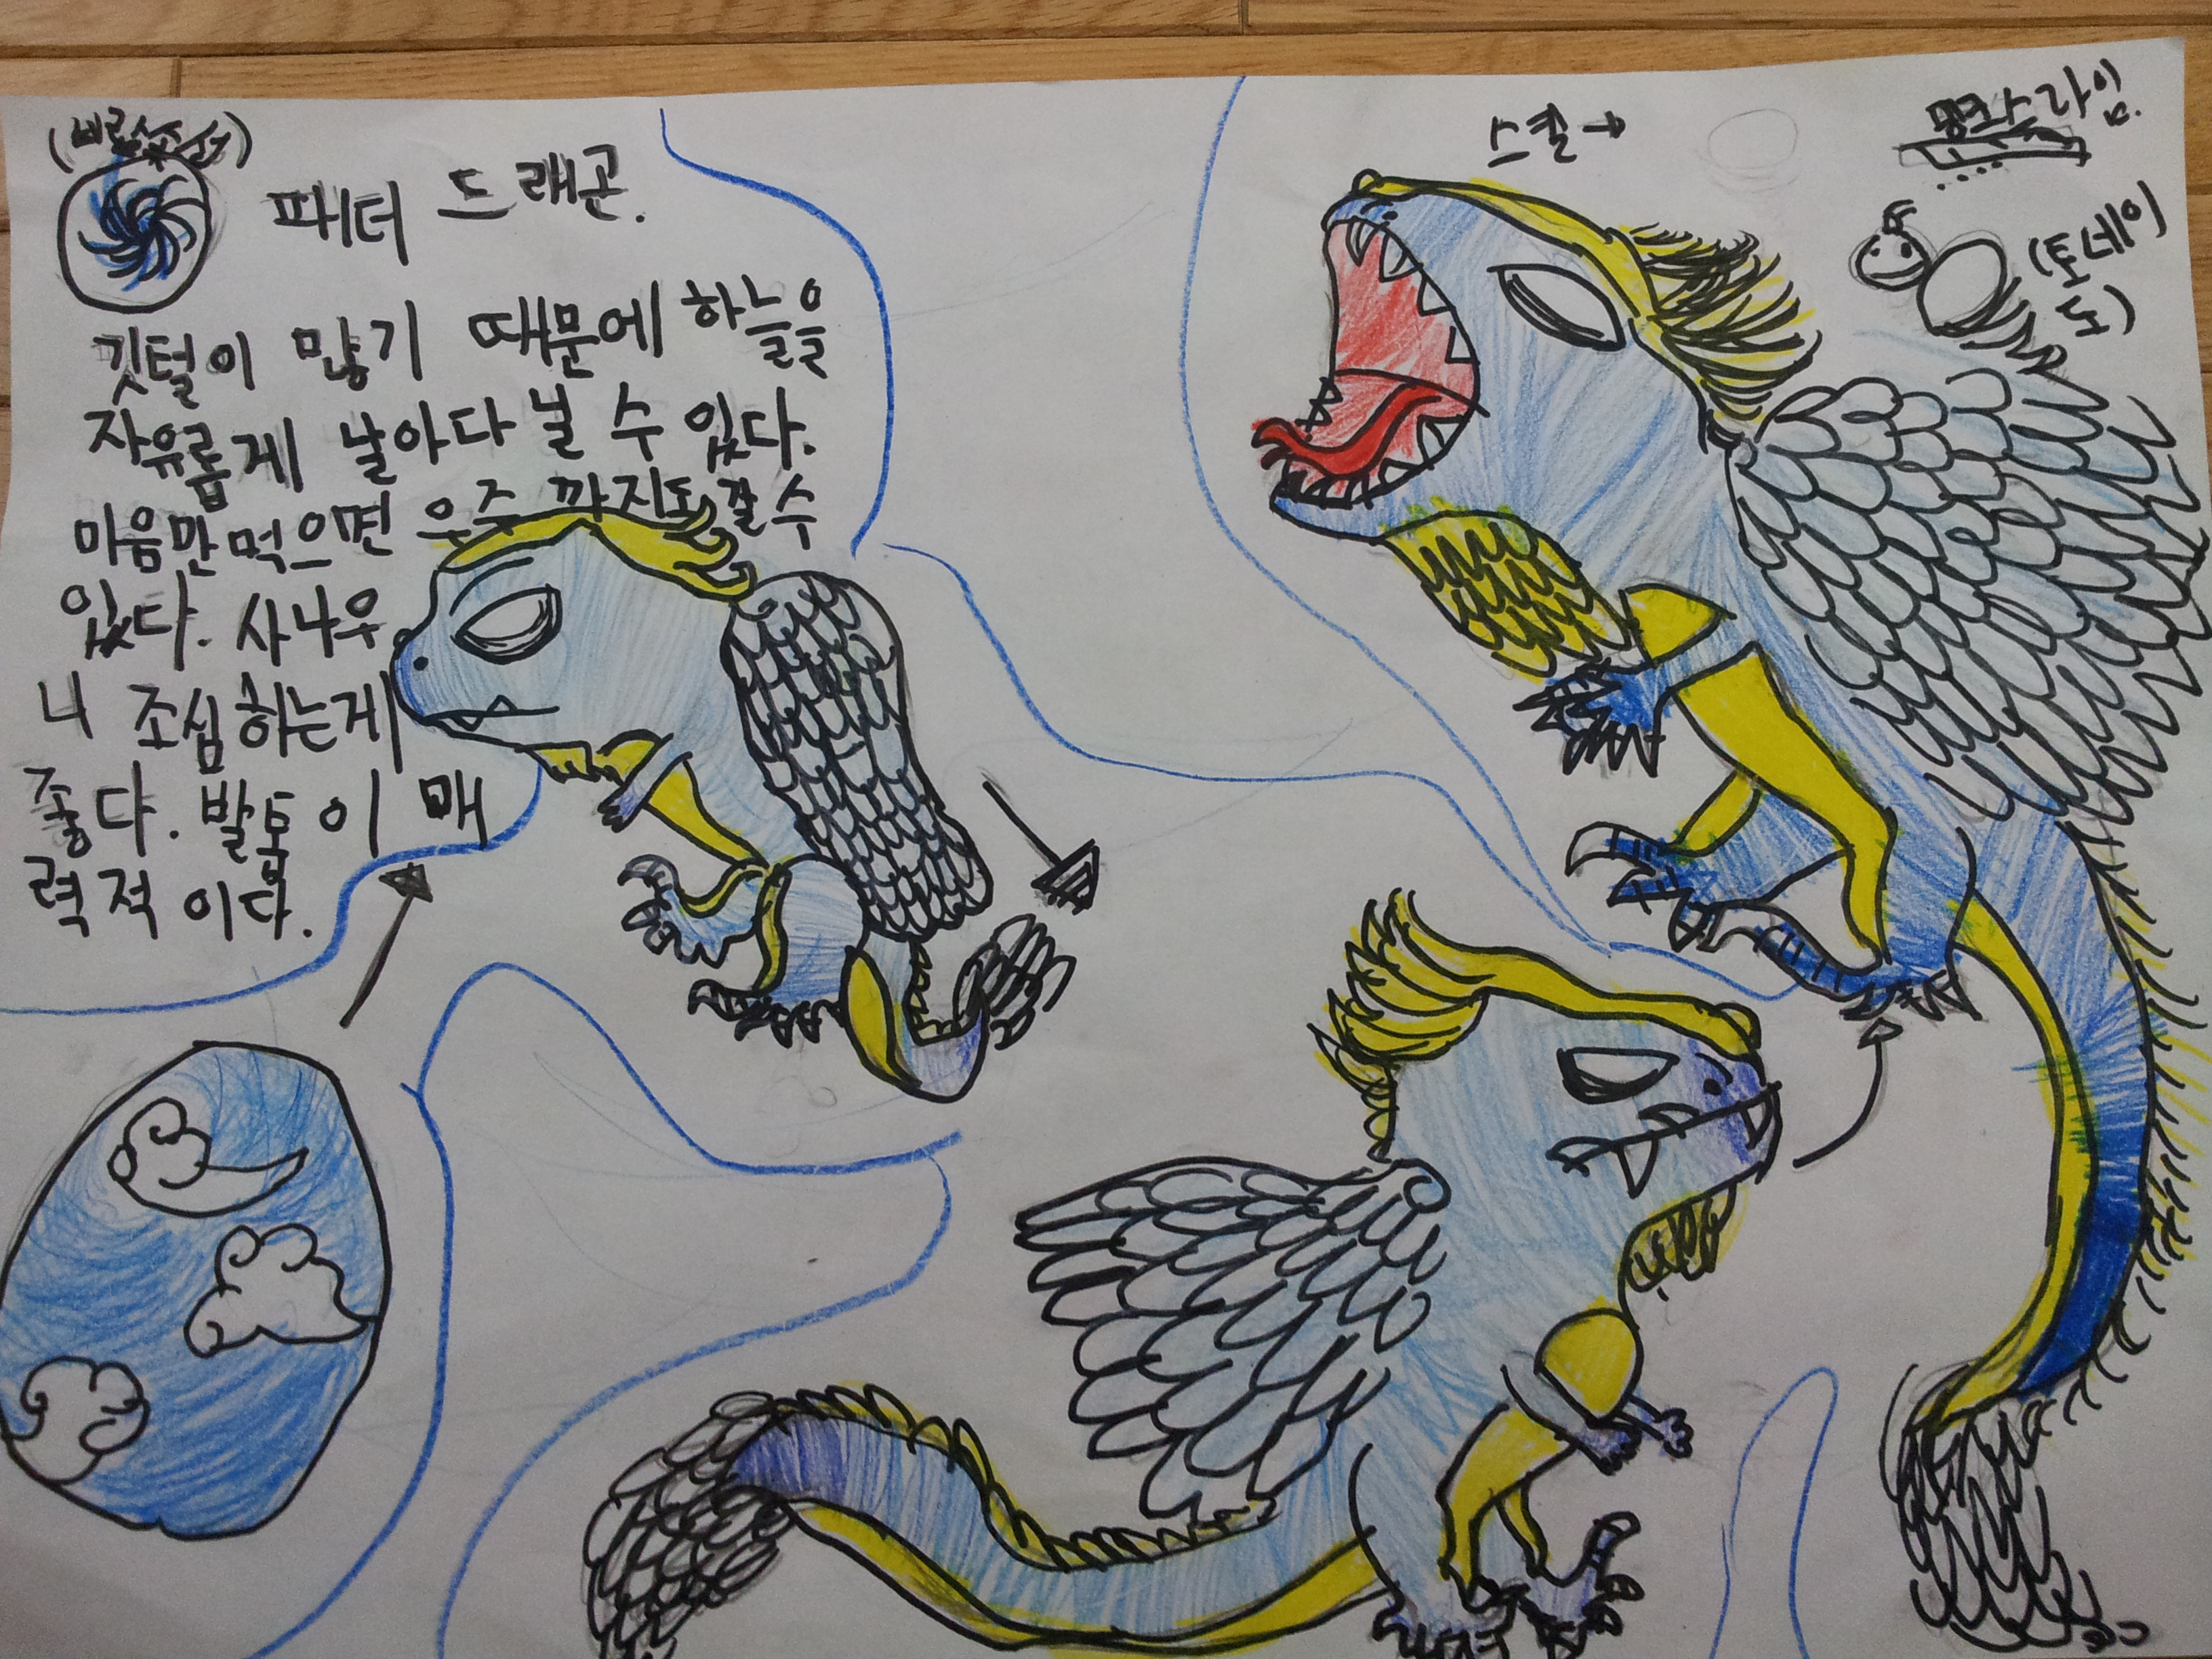 파터 드래곤.
깃털이 많기 때문에 하늘을
자유롭게 날아다닐 수 있다.
마음만먹으면 우주까지도 갈수
있다. 사나우
니 조심하는게
좋다. 발톱이 매
력적이다.
스킬→
(토네이
도)